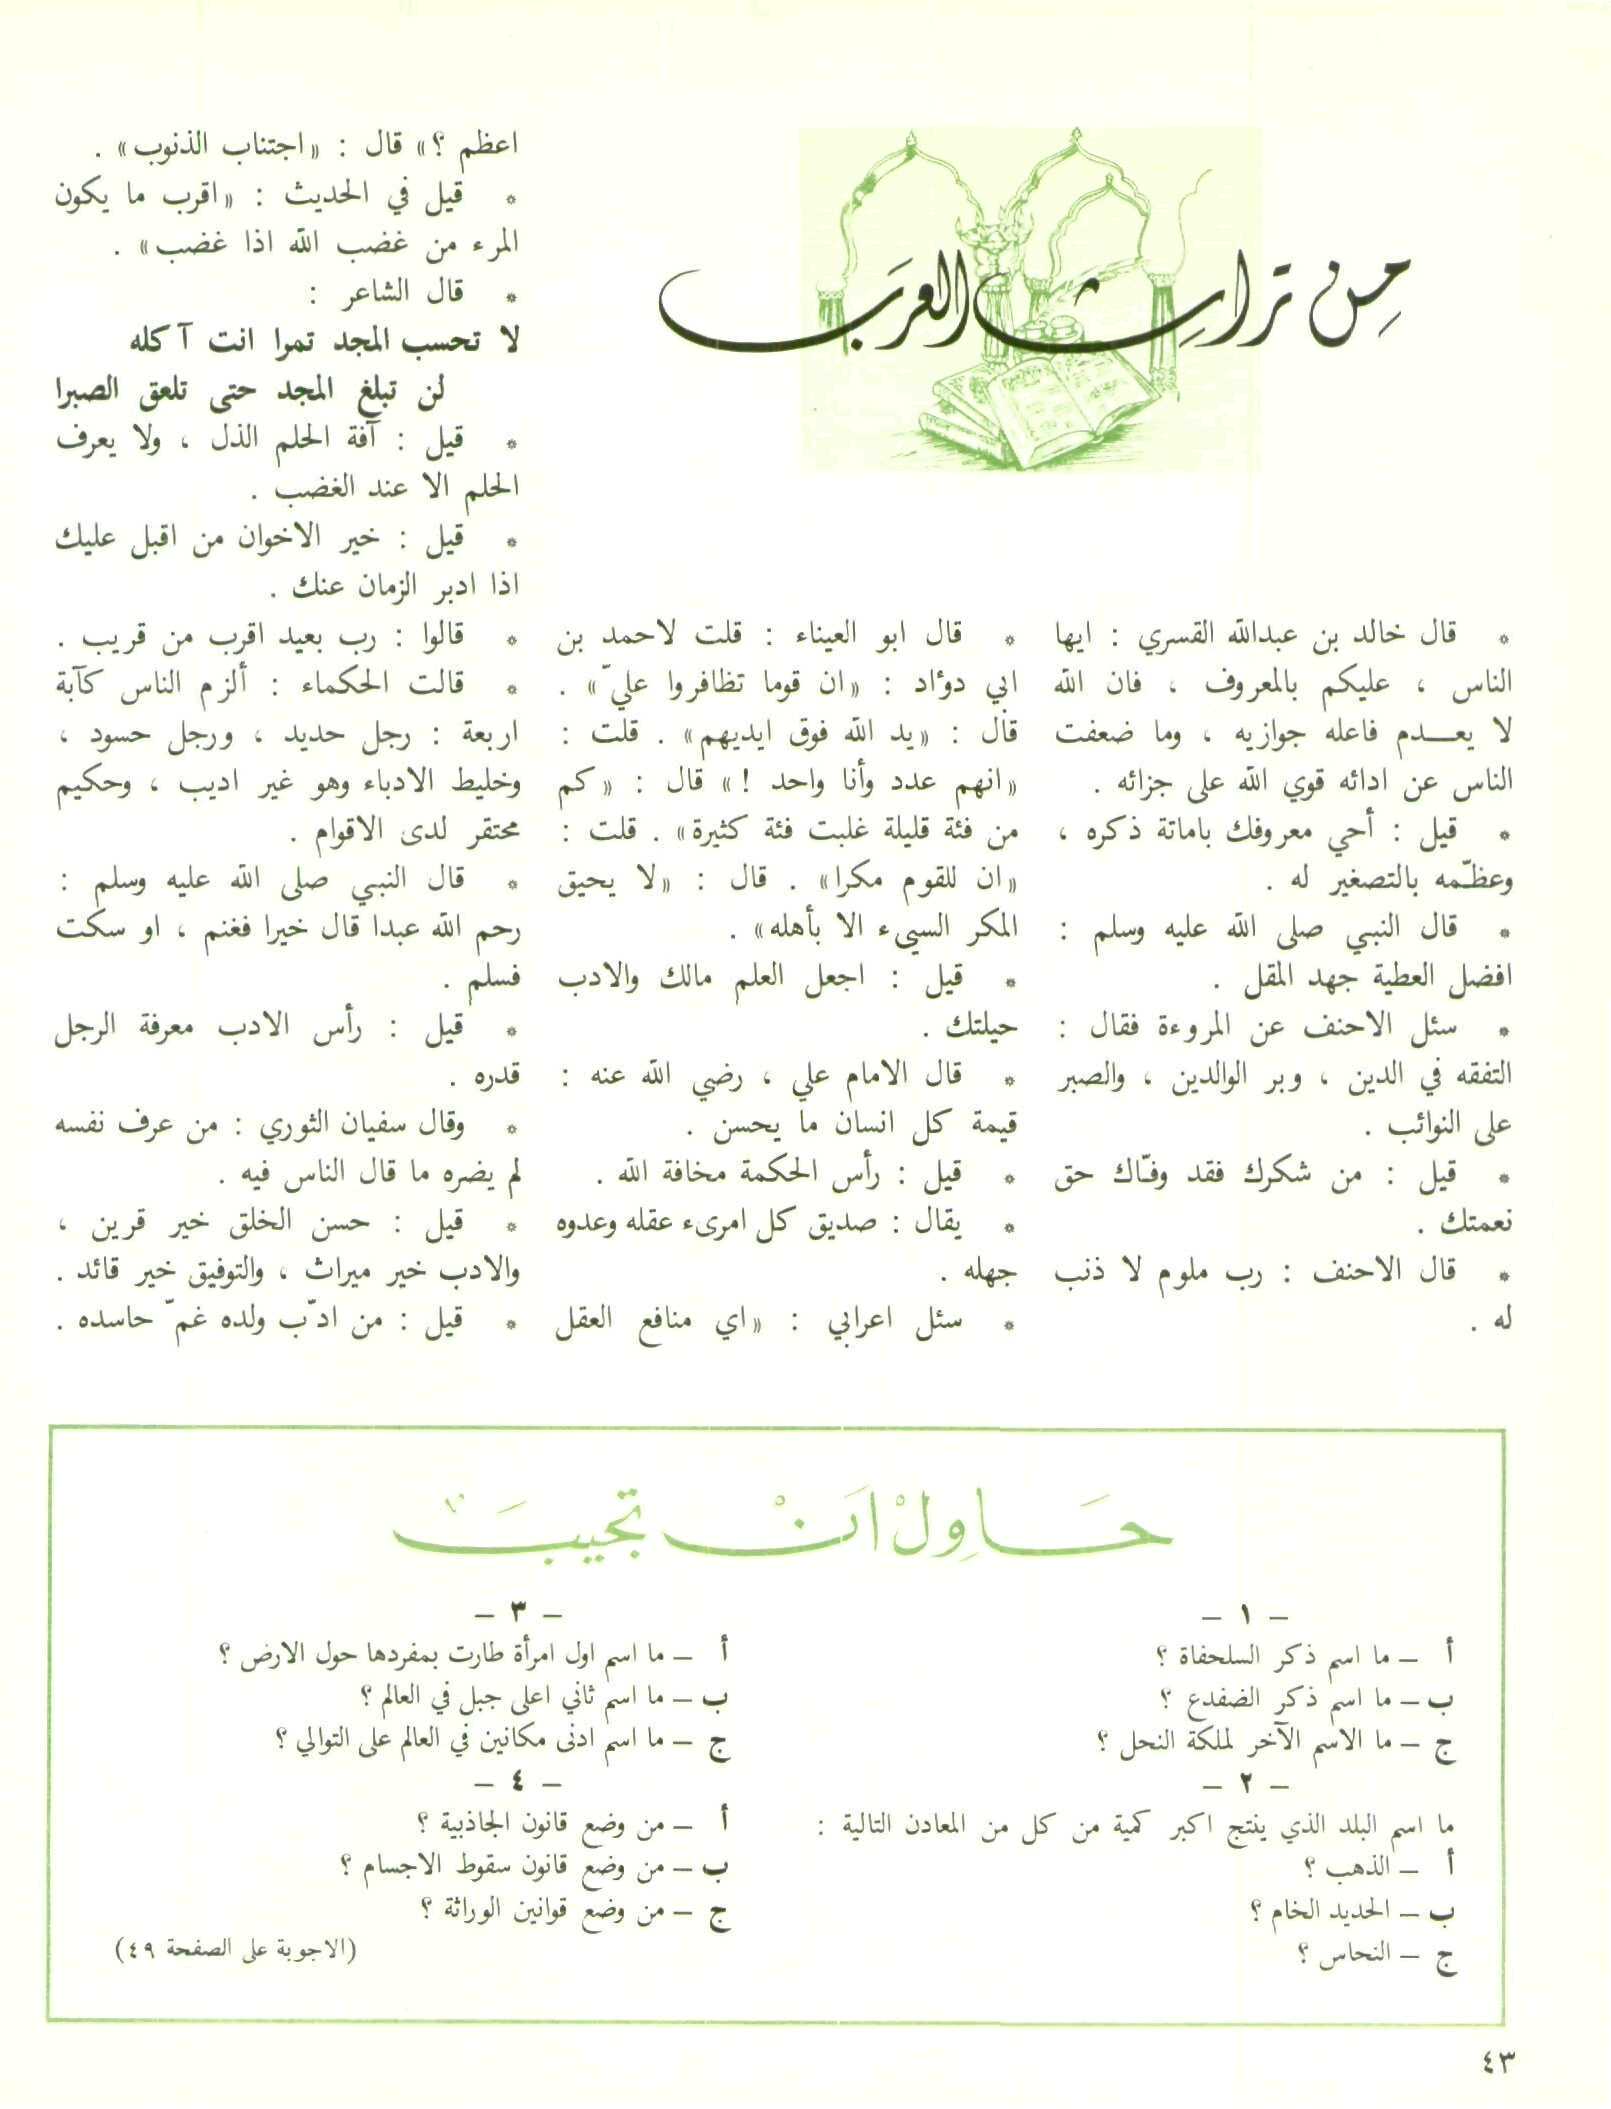 من تراث العرب
* قال خالد بن عبدالله القسري : ايها
الناس ، عليكم بالمعروف ، فان الله
لا يعــدم فاعله جوازيه ، وما ضعفت
الناس عن ادائه قوي الله على جزائه .
* قيل : أحي معروفك باماتة ذكره ،
وعظّمه بالتصغير له .
* قال النبي صلى الله عليه وسلم :
افضل العطية جهد المقل .
* سئل الاحنف عن المروءة فقال :
التفقه في الدين ، وبر الوالدين ، والصبر
على النوائب .
* قيل : من شكرك فقد وفّاك حق
نعمتك .
* قال الاحنف : رب ملوم لا ذنب
له .
* قال ابو العيناء : قلت لاحمد بن
ابي دوُاد : «ان قوما تظافروا عليّ» .
قال : «يد الله فوق ايديهم» . قلت :
«انهم عدد وأنا واحد !» قال : «كم
من فئة قليلة غلبت فئة كثيرة» . قلت :
«ان للقوم مكرا» . قال : «لا يحيق
المكر السيىء الا بأهله» .
* قيل : اجعل العلم مالك والادب
حيلتك .
* قال الامام علي ، رضي الله عنه :
قيمة كل انسان ما يحسن .
* قيل : رأس الحكمة مخافة الله .
* يقال : صديق كل امرىء عقله وعدوه
جهله .
* سئل اعرابي : «اي منافع العقل
اعظم ؟» قال : «اجتناب الذنوب» .
* قيل في الحديث : «اقرب ما يكون
المرء من غضب الله اذا غضب» .
* قال الشاعر :
لا تحسب المجد تمرا انت آكله
لن تبلغ المجد حتى تلعق الصبرا
* قيل : آفة الحلم الذل ، ولا يعرف
الحلم الا عند الغضب .
* قيل : خير الاخوان من اقبل عليك
اذا ادبر الزمان عنك .
* قالوا : رب بعيد اقرب من قريب .
* قالت الحكماء : ألزم الناس كآبة
اربعة : رجل حديد ، ورجل حسود ،
وخليط الادباء وهو غير اديب ، وحكيم
محتقر لدى الاقوام .
* قال النبي صلى الله عليه وسلم :
رحم الله عبدا قال خيرا فغنم ، او سكت
فسلم .
* قيل : رأس الادب معرفة الرجل
قدره .
* وقال سفيان الثوري : من عرف نفسه
لم يضره ما قال الناس فيه .
* قيل : حسن الخلق خير قرين ،
والادب خير ميراث ، والتوفيق خير قائد .
* قيل : من ادّب ولده غمّ حاسده .
حَاوِلْ اَنْ تجيبَ
– ١ –
أ – ما اسم ذكر السلحفاة ؟
ب – ما اسم ذكر الضفدع ؟
ج – ما الاسم الآخر لملكة النحل ؟
– ٢ –
ما اسم البلد الذي ينتج اكبر كمية من كل من المعادن التالية :
أ – الذهب ؟
ب – الحديد الخام ؟
ج – النحاس ؟
– ٣ –
أ – ما اسم اول امرأة طارت بمفردها حول الارض ؟
ب – ما اسم ثاني اعلى جبل في العالم ؟
ج – ما اسم ادنى مكانين في العالم على التوالي ؟
– ٤ –
أ – من وضع قانون الجاذبية ؟
ب – من وضع قانون سقوط الاجسام ؟
ج – من وضع قوانين الوراثة ؟
(الاجوبة على الصفحة ٤٩)
٤٣